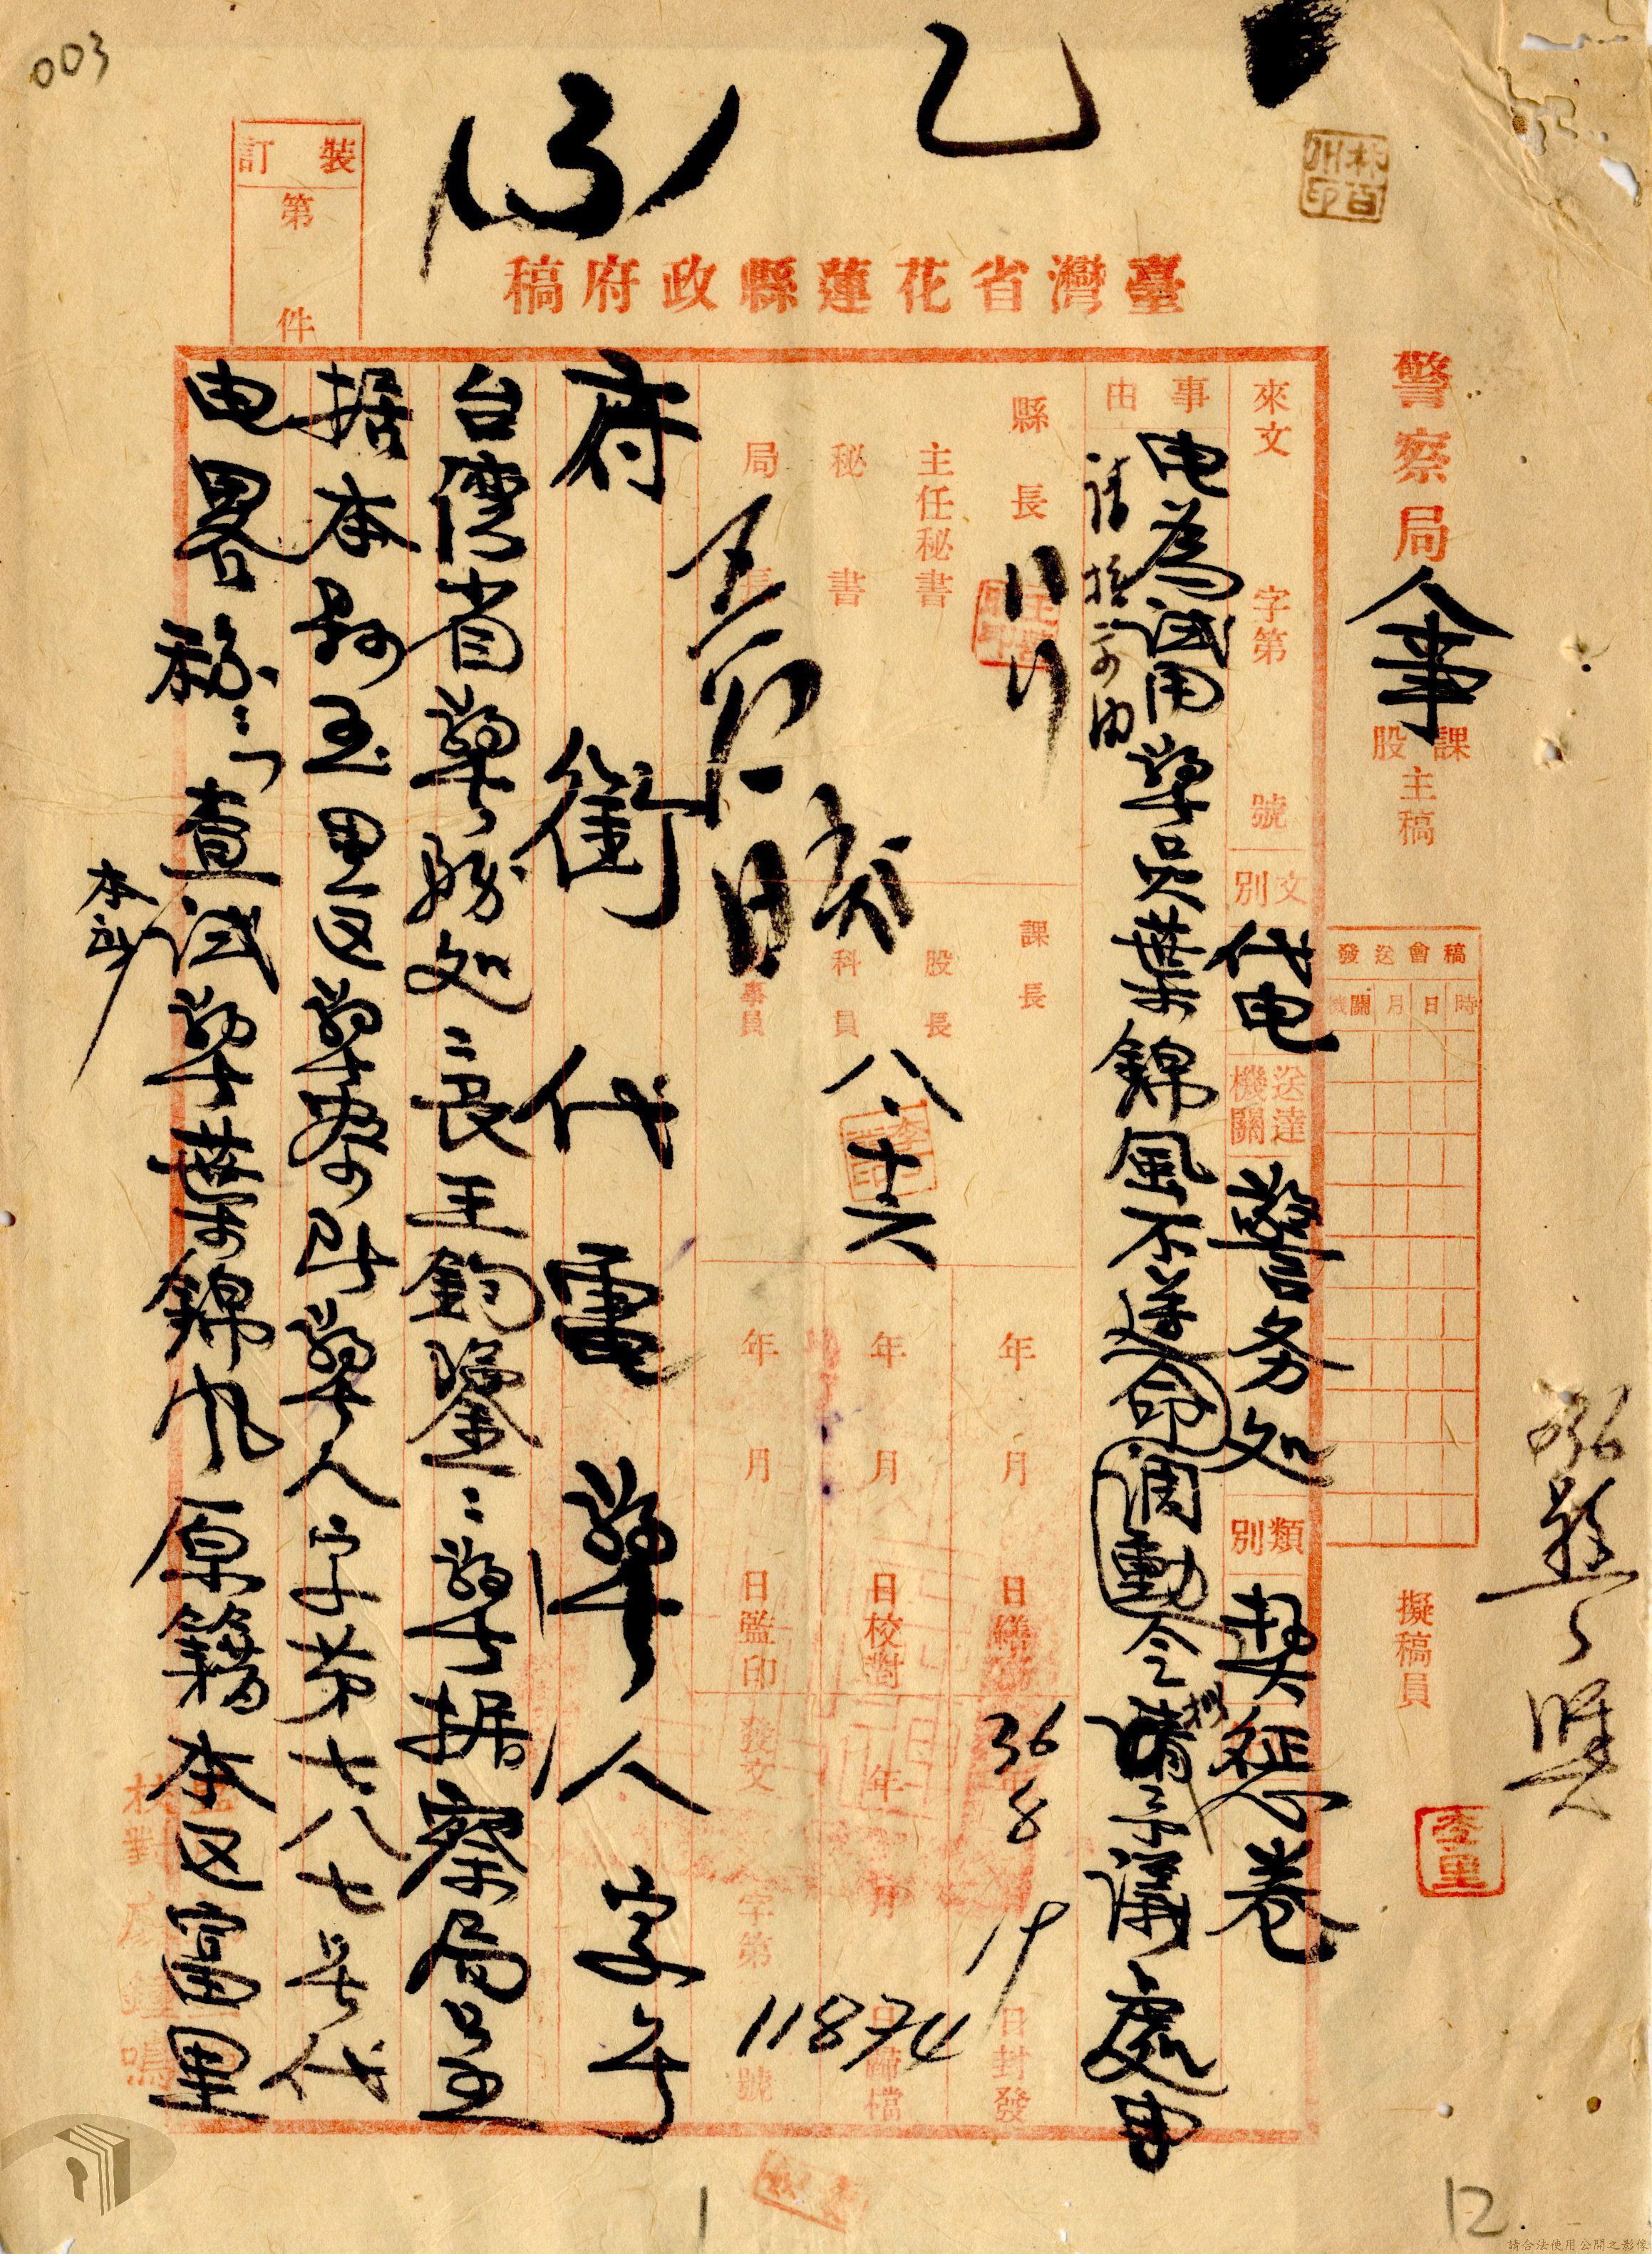 003
乙
(3)
林百川印
裝訂
第
件
臺灣省花蓮縣政府稿
警察局
人事
課
股
主稿
擬稿員
稿會送發
時
日
月
機關
來文
字第
號
文別
代电
送達機關
警务处
類別
奬惩卷
事由
电為試用警員葉錦風不遵命調動令請示議處由
縣長
主任秘書
秘書
局長
課長
股長
科員
事員
八.十六
年
月
日繕寫
年
月
日校對
年
月
日監印
36
8
19
日封發
年
月
日歸檔
發文
字第
11874
號
府銜代電
人字
号
台湾省警務処〻長王鈞鑒〻警据察局呈
据本县玉里区警察所警人字第七八七号代
电畧称〻「查試警葉錦風原籍本区富里
1
12
請合法使用公開之影像